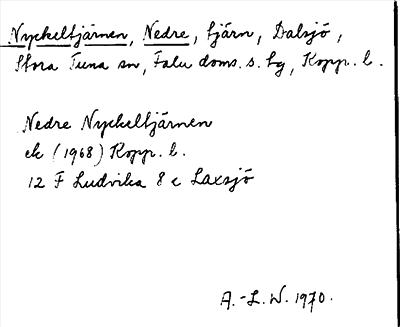 Nyckeltjärnen, Nedre, tjärn, Dalsjö,
Stora Tuna sn, Falu doms. s. tg, Kopp. l.
Nedre Nyckeltjärnen
ek (1968) Kopp. l.
12 F Ludvika 8 c Laxsjö
A.-L. W. 1970.